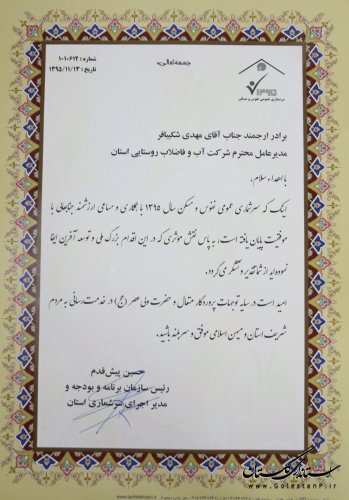 بسمه تعالی
شماره : ۱۰۱۰۶۱۲
تاریخ : ۱۳۹۵/۱۱/۱۳
۱۳۹۵
سرشماری عمومی نفوس و مسکن
برادر ارجمند جناب آقای مهدی شکیبافر
مدیرعامل محترم شرکت آب و فاضلاب روستایی استان
با اهداء سلام،
اینک که سرشماری عمومی نفوس و مسکن سال ۱۳۹۵ با همکاری و مساعی ارزشمند جنابعالی با
موفقیت پایان یافته است، به پاس نقش مؤثری که در این اقدام بزرگ ملی و توسعه آفرین ایفا
نموده اید از شما تقدیر و تشکر می گردد.
امید است در سایه توجهات پروردگار متعال و حضرت ولی عصر (عج) در خدمت رسانی به مردم
شریف استان و میهن اسلامی موفق و سربلند باشید.
حسین پیش قدم
رئیس سازمان برنامه و بودجه و
مدیر اجرای سرشماری استان
www.GolestanP.ir